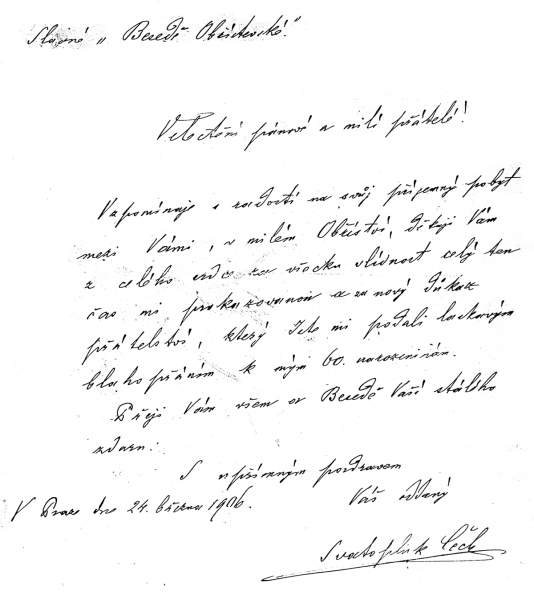 Slavné „Besedě Obřístecké."
Velectění pánové a milí přátelé!
Vzpomínaje s radostí na svůj příjemný pobyt
mezi Vámi, v milém Obříství, děkuji Vám
z celého srdce za všecku vlídnost celý ten
čas mi prokazovanou a za nový důkaz
přátelství, který jste mi podali laskavým
blahopřáním k mým 60. narozeninám.
Přeji Vám všem a Besedě Vaší stálého
zdaru.
S upřímným pozdravem
Váš oddaný
V Praze dne 24. března 1906.
Svatopluk Čech